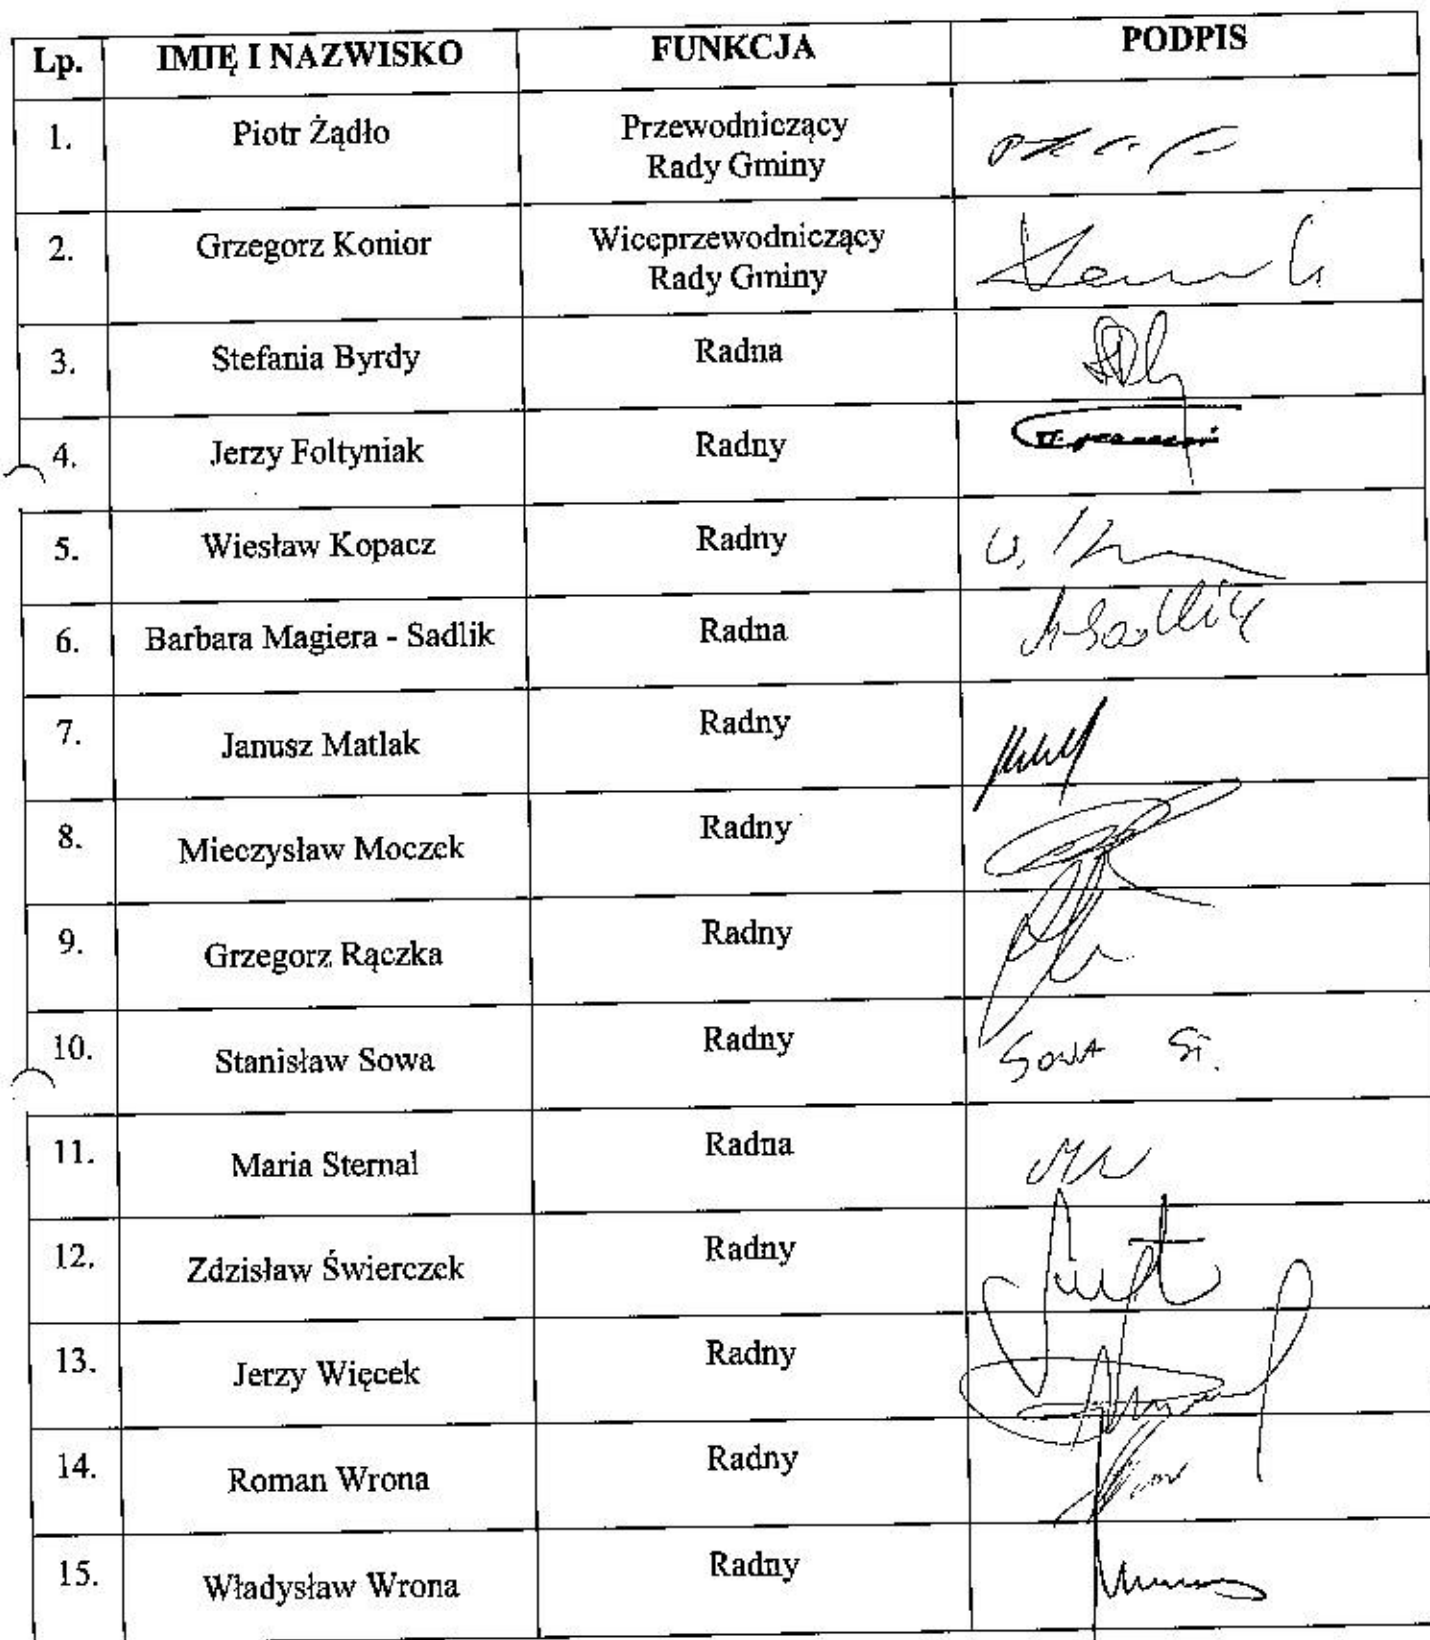 Lp. IMIĘ I NAZWISKO FUNKCJA PODPIS
1. Piotr Żądło Przewodniczący
Rady Gminy
2. Grzegorz Konior Wiceprzewodniczący
Rady Gminy
3. Stefania Byrdy Radna
4. Jerzy Foltyniak Radny
5. Wiesław Kopacz Radny
6. Barbara Magiera - Sadlik Radna
7. Janusz Matlak Radny
8. Mieczysław Moczek Radny
9. Grzegorz Rączka Radny
10. Stanisław Sowa Radny Sowa St.
11. Maria Sternal Radna
12. Zdzisław Świerczek Radny
13. Jerzy Więcek Radny
14. Roman Wrona Radny
15. Władysław Wrona Radny